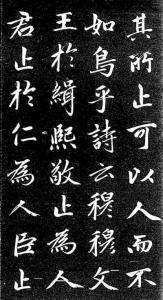 其所止可以人而不
如鳥乎詩云穆穆文
王於緝熙敬止為人
君止於仁為人臣止